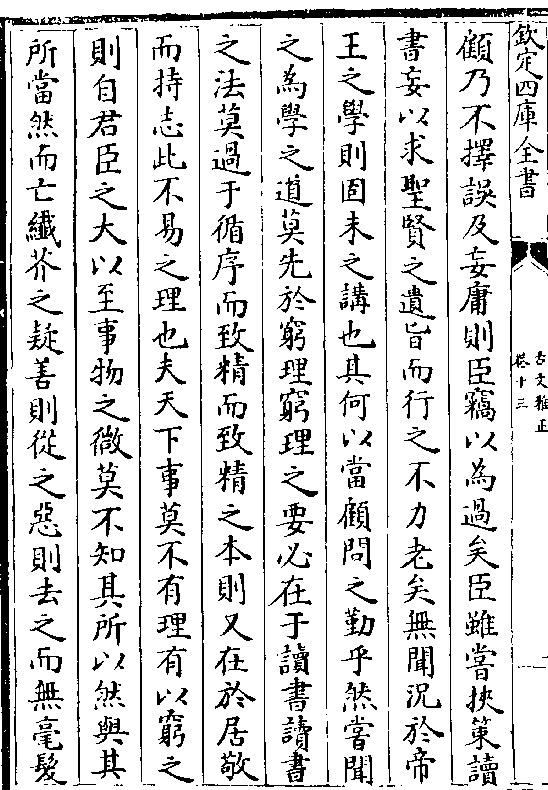 欽定四庫全書
古文雅正
卷十三
顧乃不擇誤及妄庸則臣竊以為過矣臣雖嘗挾策讀
書妄以求聖賢之遺旨而行之不力老矣無聞況於帝
王之學則固未之講也其何以當顧問之勤乎然嘗聞
之為學之道莫先於窮理窮理之要必在于讀書讀書
之法莫過于循序而致精而致精之本則又在於居敬
而持志此不易之理也夫天下事莫不有理有以窮之
則自君臣之大以至事物之微莫不知其所以然與其
所當然而亡纖芥之疑善則從之惡則去之而無毫髮